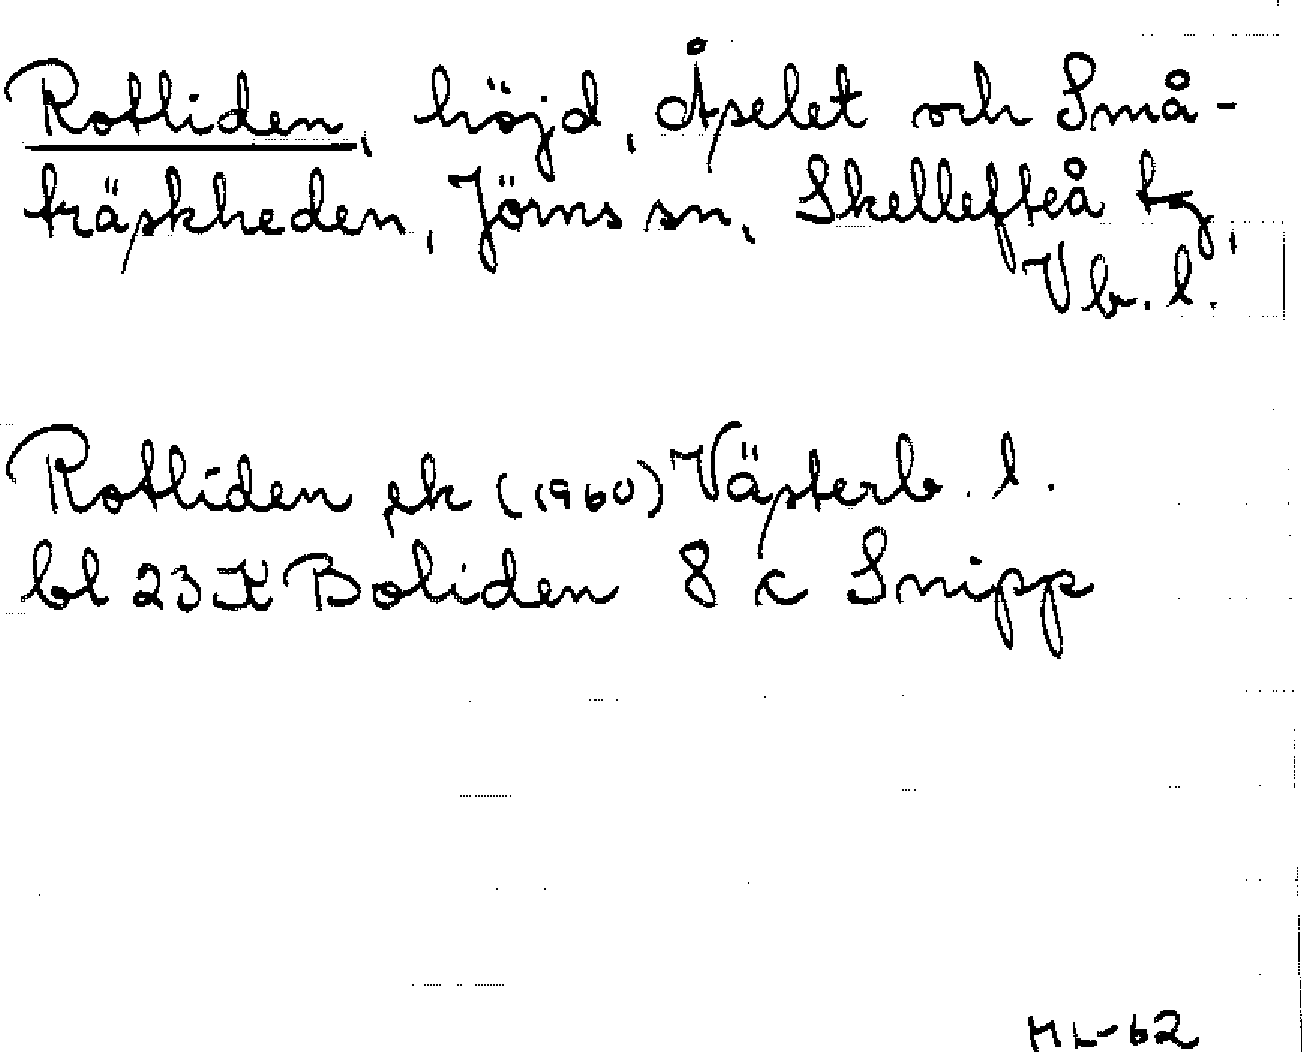 Rotliden, höjd, Åselet och Små-
träskheden, Jörns sn, Skellefteå tg,
Vb. l.
Rotliden ek (1960) Västerb. l.
bl 23 K Boliden 8 c Snipp
ML-62